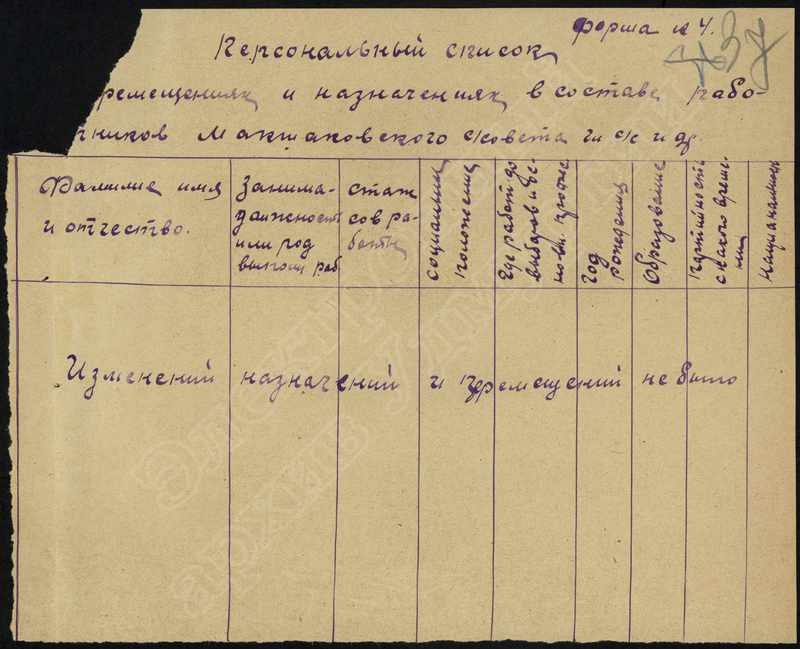 форма № 4.
Персональный список
ремещениях и назначениях в составе рабо-
тников Макшаковского с/совета
Фамилие имя
и отчество.
Занима-
должност
или род
выполн раб
стаж
сов ра-
боты
социально
положение
где работ до
выборов и ос-
новн. профес
год
рождения
Образование
Партийность
с какого време-
ни
Национальнос
Изменений назначений и перемещений не было
Электро
архив Удм